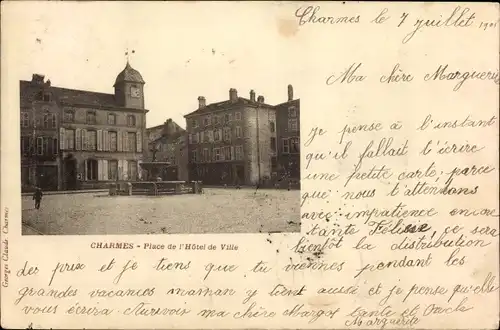 Charmes le 7 juillet
Ma chère Marguerite
je pense à l'instant
qu'il fallait t'écrire
une petite carte parce
que nous t'attendons
avec impatience
tante Félisse, ce sera
bientôt la distribution
des prise et je tiens que tu viennes pendant les
grandes vacances maman y tient aussi et je pense qu'elle
vous écrira Aurevoir ma chère Margot tante et oncle
Marguerite
CHARMES - Place de l'Hôtel de Ville
Georges Claude Charmes